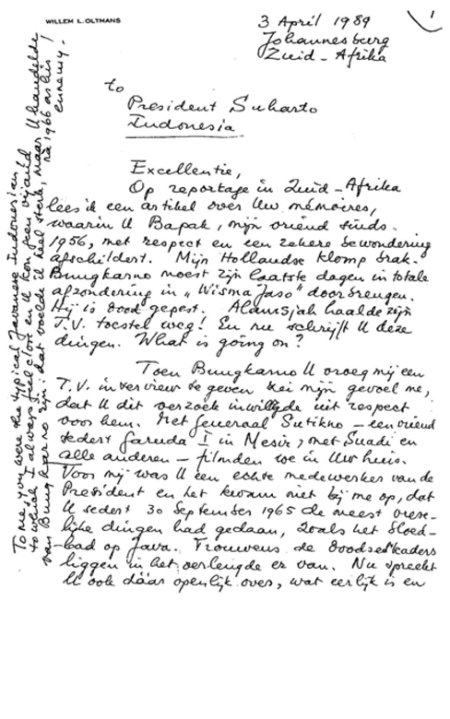 1
WILLEM L. OLTMANS
3 April 1989
Johannesburg
Zuid-Afrika
to
President Suharto
Indonesia
Excellentie,
Op reportage in Zuid-Afrika
lees ik een artikel over Uw mémoires,
waarin U Bapak, mijn vriend sinds
1956, met respect en een zekere bewondering
afschildert. Mijn Hollandse klomp brak.
Bungkarno moest zijn laatste dagen in totale
afzondering in „Wisma Jaso” doorbrengen.
Hij is dood gepest. Alamsjah haalde zijn
T.V. toestel weg! En nu schrijft U deze
dingen. What is going on?
Toen Bungkarno U vroeg mij een
T.V. interview te geven zei mijn gevoel me,
dat U dit verzoek inwilligde uit respect
voor hem. Met generaal Sutikno – een vriend
sedert Garuda I in Mesir, met Suadi en
alle anderen – filmden we in Uw huis.
Voor mij was U een echte medewerker van de
President en het kwam niet bij me op, dat
U sedert 30 September 1965 de meest vrese-
lijke dingen had gedaan, zoals het bloed-
bad op Java. Trouwens de doodseskaders
liggen in het verlengde er van. Nu spreekt
U ook dáár openlijk over, wat eerlijk is en
To me, you were the typical Javanese Indonesian
to which I always feel close en U kon geen vijand
van Bung Karno zijn: dat voelde ik heel sterk, maar U handelde
na 1966 as his
ennemy!